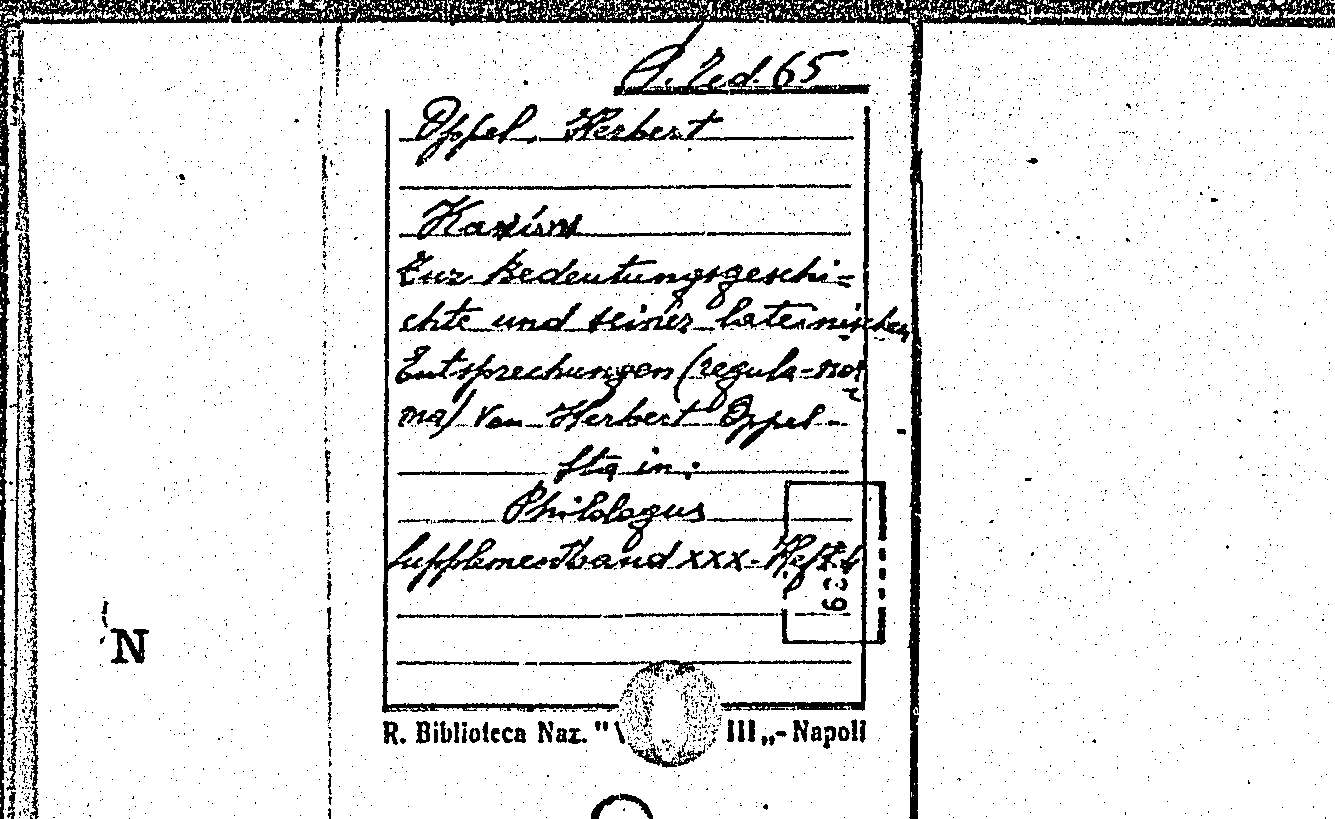 P. Ted. 65
Oppel Herbert
Kavών
Zur Bedeutungsgeschi=
chte und seiner lateinischen
Entsprechungen (regula-nor
ma) Von Herbert Oppel-
Sta in:
Philologus
Supplementband XXX- Heft 4
63
N
R. Biblioteca Naz. "V III„- Napoli